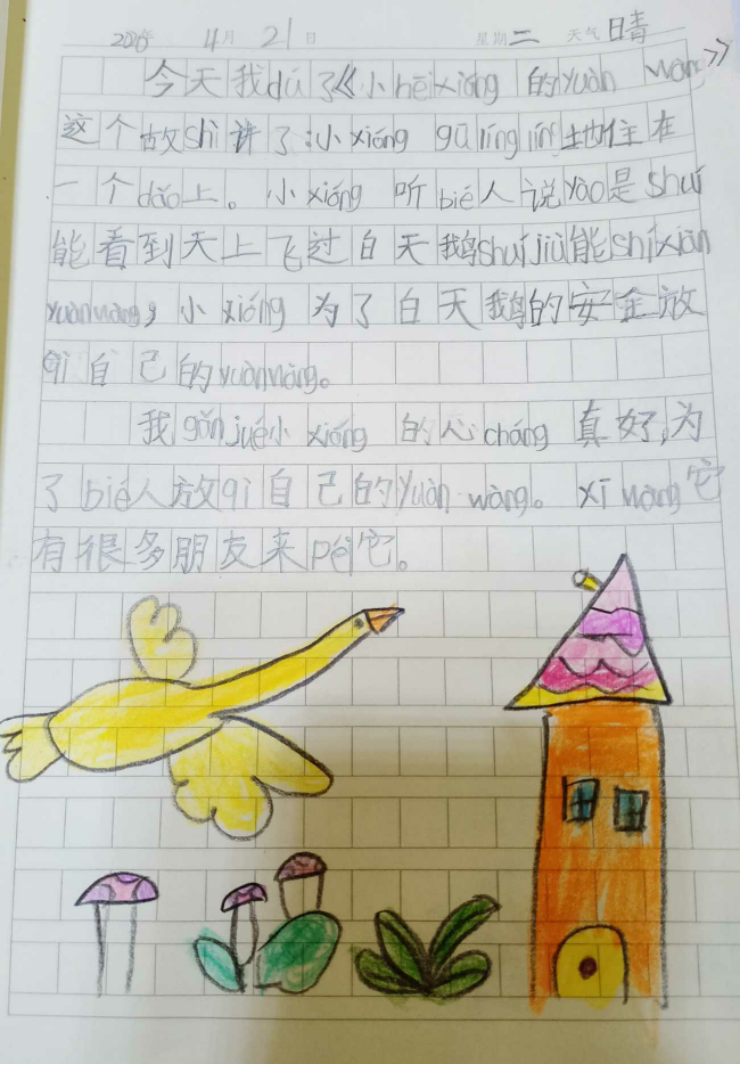 2026年 4月 21日 星期二 天气晴
今天我dú了《小hēixióng的yuàn wàng》
这个故shì讲了:小xióng gūlínglíng地住在
一个dǎo上。小xióng听bié人说yào是shuí
能看到天上飞过白天鹅shuíjiù能shíxiàn
yuànwàng,小xióng为了白天鹅的安全放
qì自己的yuànwàng。
我gǎnjué小xióng的心cháng真好,为
了bié人放qì自己的yuàn wàng。xī wàng它
有很多朋友来péi它。